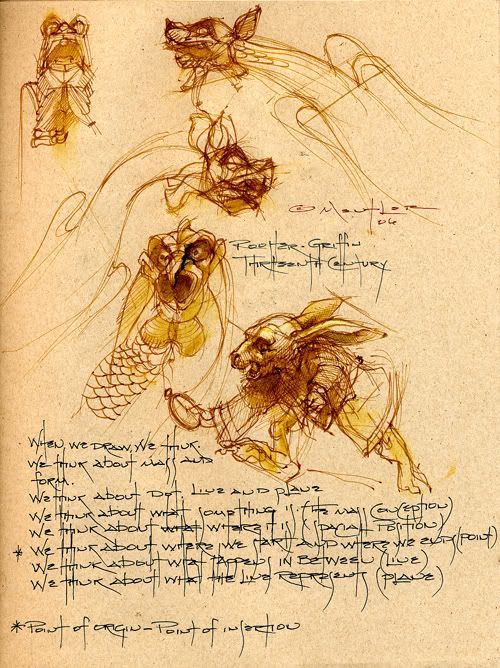 © Mentler
06
Griffin
Thirteenth Century
When we draw, we think.
We think about mass and
form.
We think about dot, line and plane
We think about what something is (the mass conception)
We think about what where it is (spacial position)
* We think about where we start and where we end (point)
We think about what happens in between (line)
We think about what the line represents (plane)
* Point of origin - Point of insertion